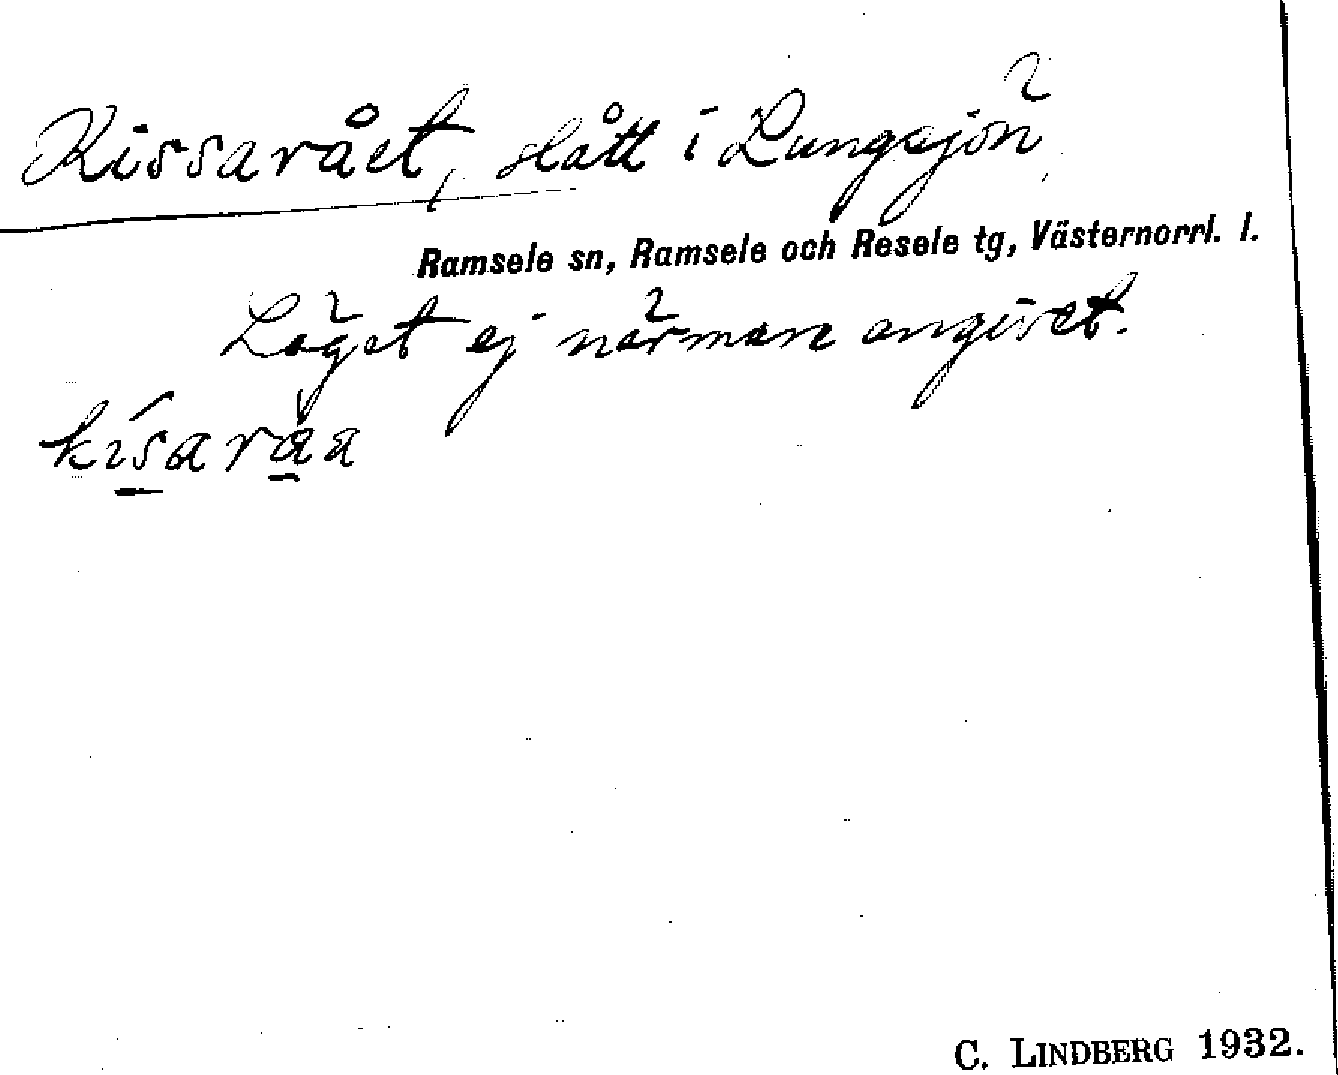 Kissarået, slått i Lungsjön,
Ramsele sn, Ramsele och Resele tg, Västernorrl. l.
Läget ej närmare angivet.
kisaråa
C. LINDBERG 1932.